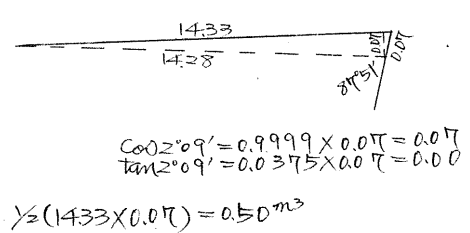 14.33
14.28
0.07
0.07
87°51'
cos2°09'=0.9999×0.07=0.07
tan2°09'=0.0375×0.07=0.00
1/2(14.33×0.07)=0.50m³